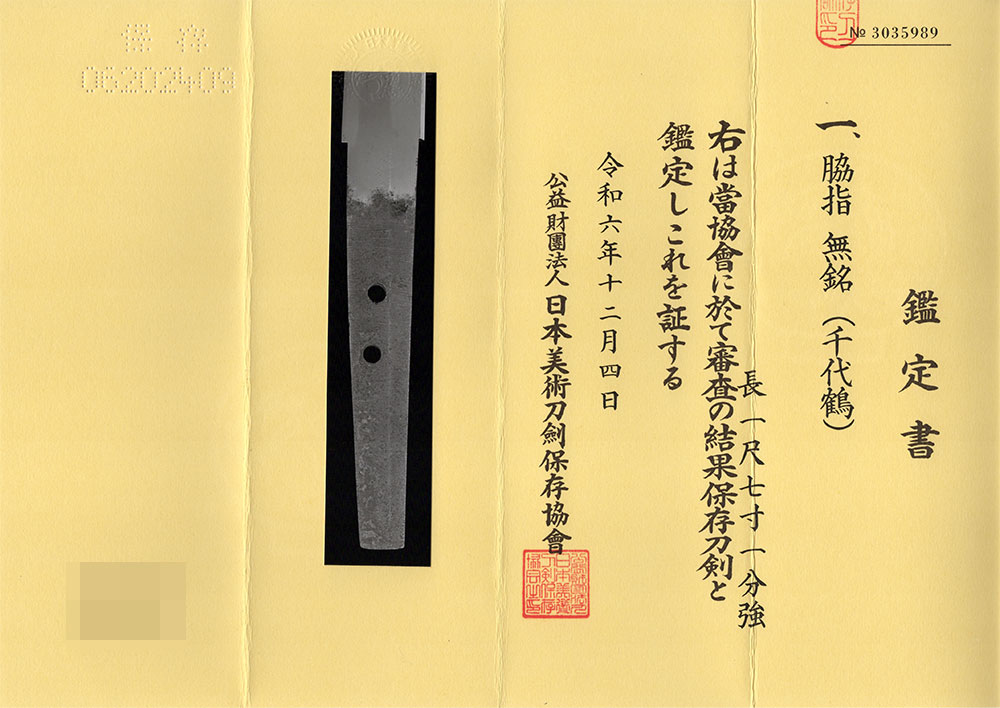 № 3035989
鑑定書
一、脇指 無銘（千代鶴）
長一尺七寸一分強
右は當協會に於て審査の結果保存刀剣と
鑑定しこれを証する
令和六年十二月四日
公益財團法人日本美術刀劍保存協會
保存
06202409